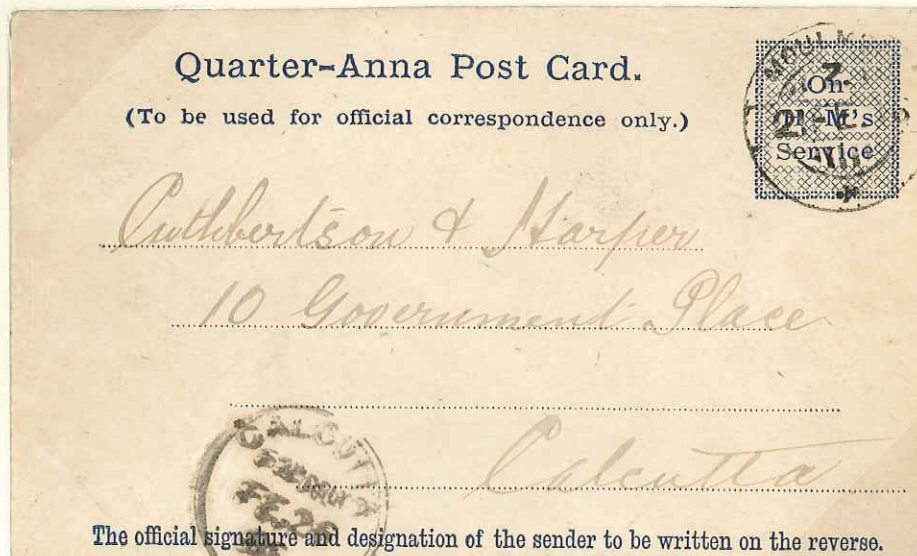 Quarter-Anna Post Card.
(To be used for official correspondence only.)
On
H M's
Service
Cuthbertson & Harper
10 Government Place
Calcutta
CALCUTTA
The official signature and designation of the sender to be written on the reverse.